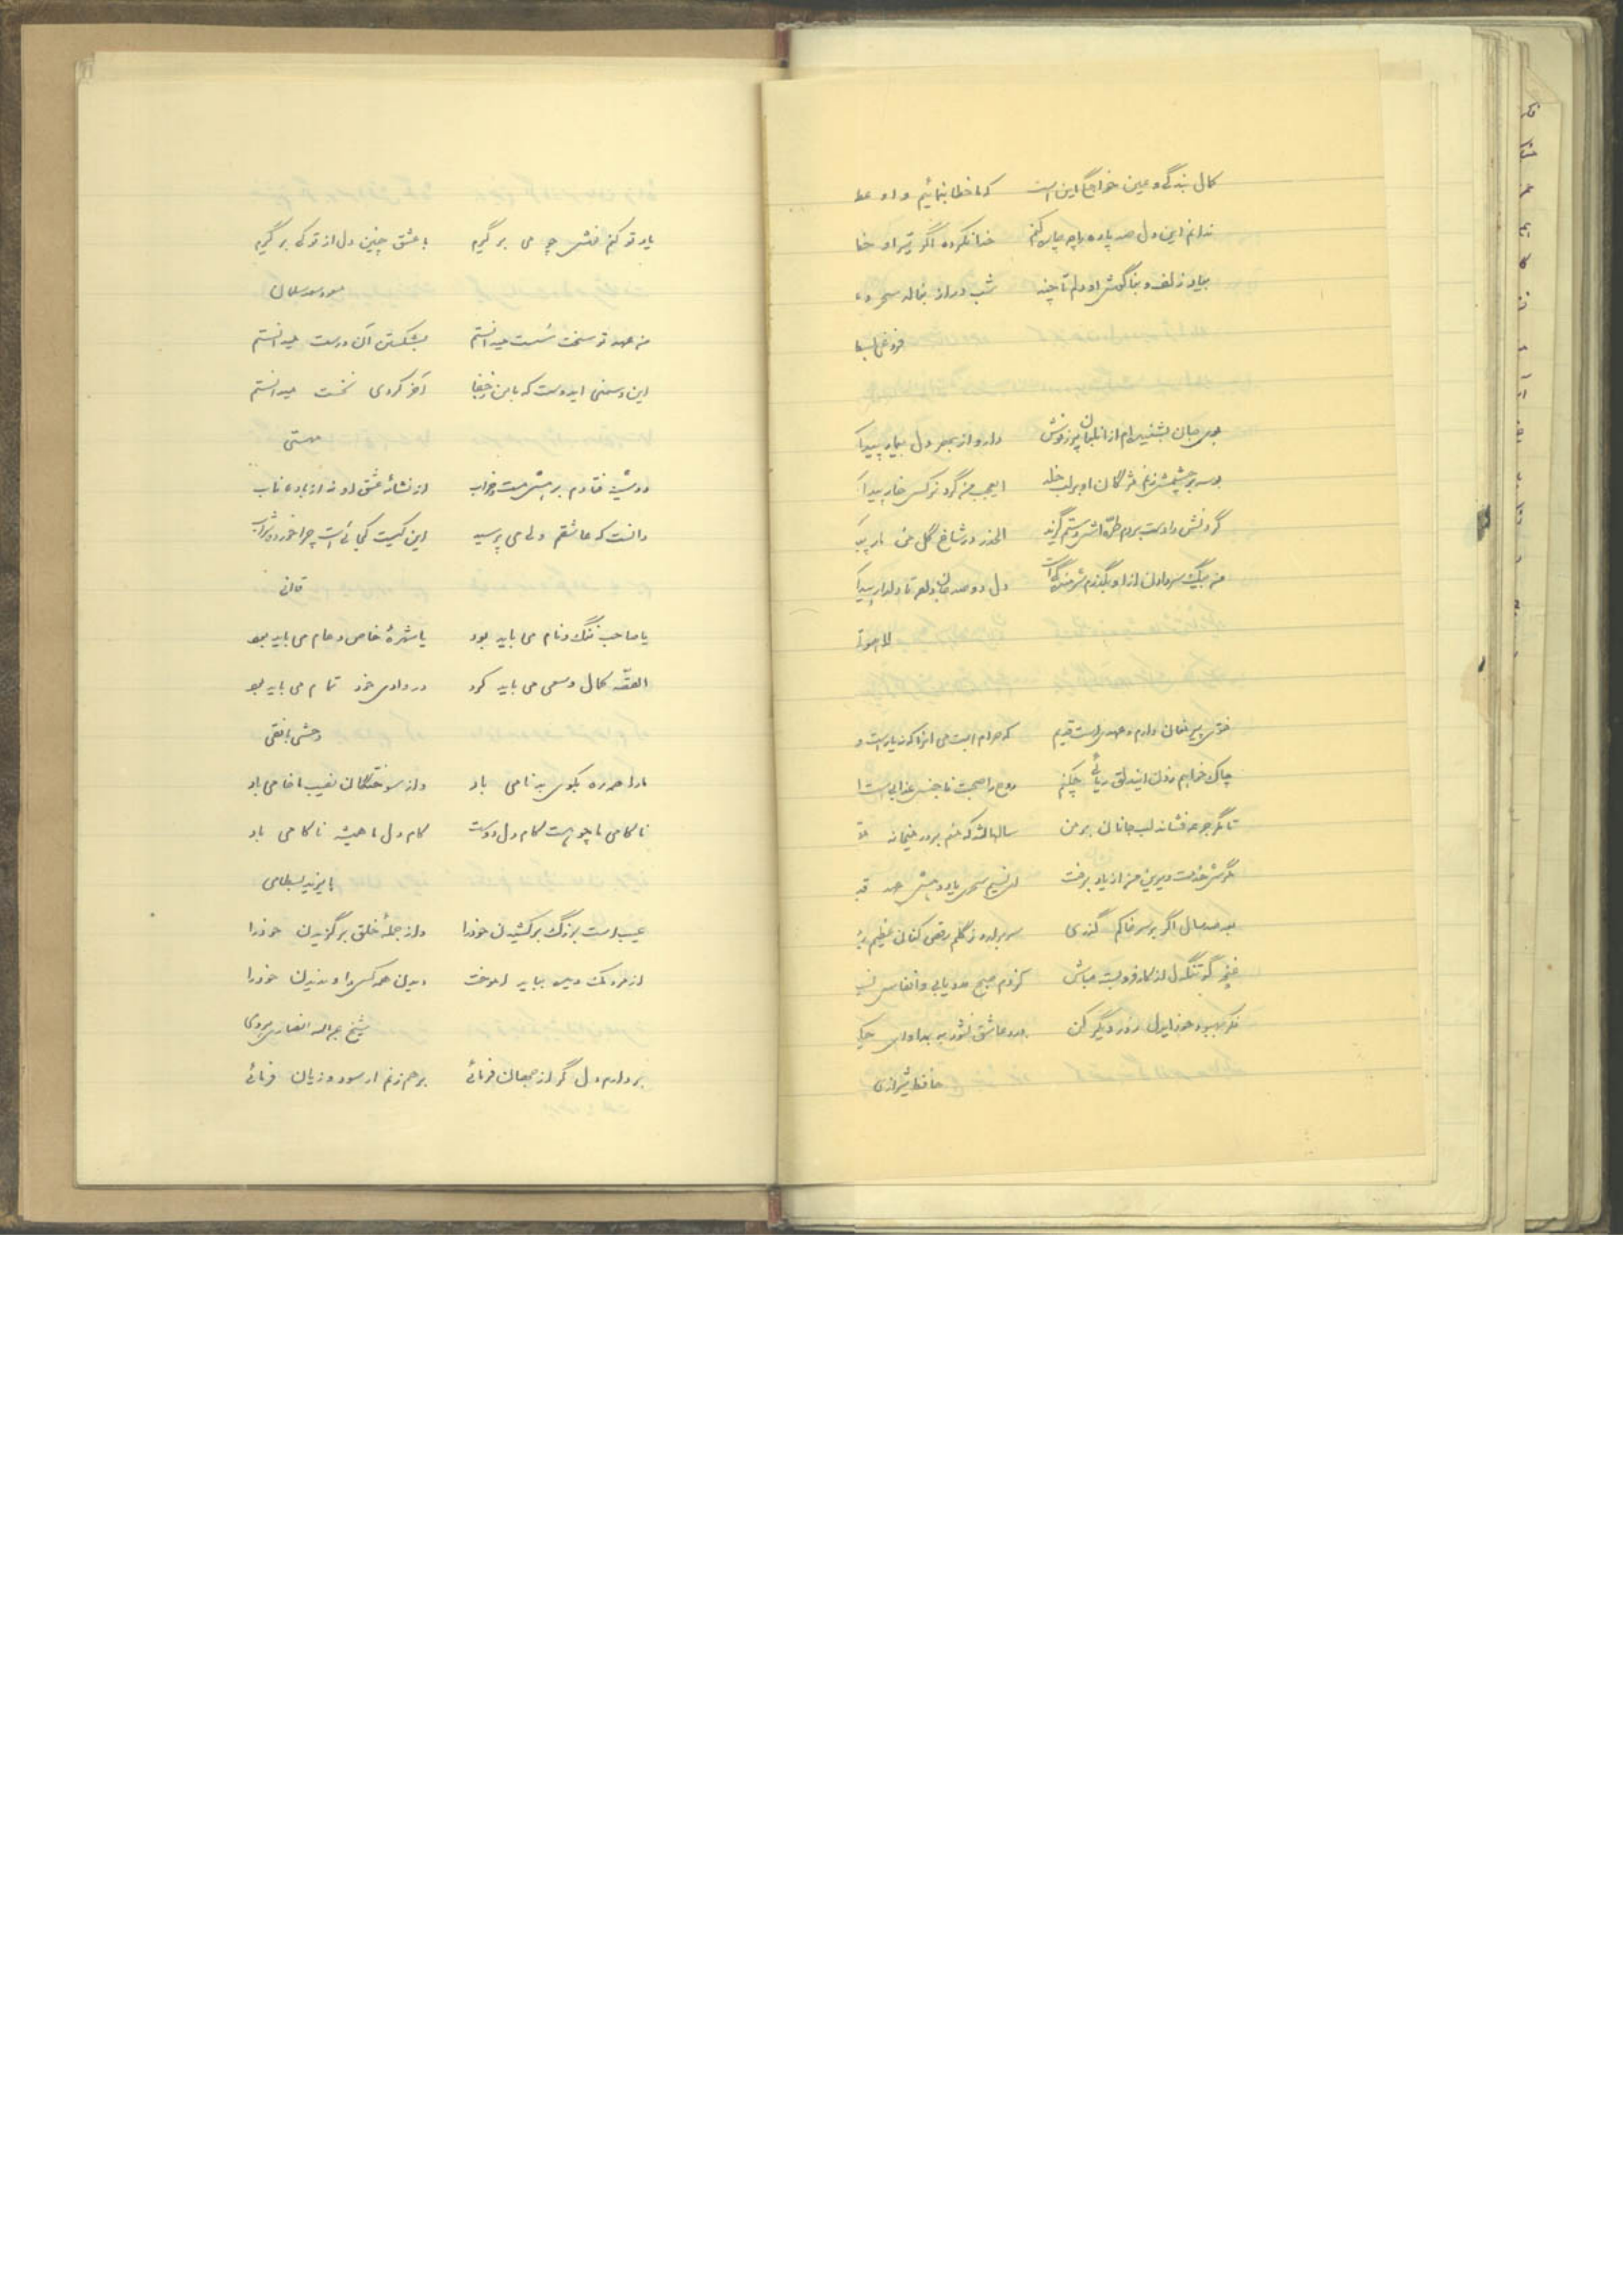 کمال بندگی و عین خواجگی این است که ما خطا بنمائیم و او عط
ندانم این دل صد پاره را چه چاره کنم خدا نکرده اگر تیر او خطا
بیاد زلف و بناگوش او دلم تا چند شب دراز بنالد سحر دعا
فروغی بسطا
بوی جان بشنیده‌ام از دارو از بهر دل بیمار پیدا
بوسه بر چشمش زنم مژگان او بر لب خلد ایعجب من گرد نرگس خار پیدا
گردنش را دست بردم طره‌اش دستم گزید الحذر در شاخ گل من مار پید
دل دو صد جا تا دلدار پیدا
لاهوتی
حق پیر مغان دارم و عهدیست قدیم که حرام است می آنرا که نه یارست و
چاک خواهم زدن ایندلق ریائی چکنم روح را صحبت ناجنس عذابیست ا
تا مگر جرعه فشاند لب جانان بر من سالها شد که منم بر در میخانه مق
مگرش خدمت دیرین من از یاد برفت ای نسیم سحری یاد دهش عهد قد
بعد صد سال اگر بر سر خاکم گذری سر برآرد ز گلم رقص کنان عظم ر
غنچه گو تنگدل از کار فروبسته مباش کز دم صبح مدد یابی و انفاس نس
فکر بهبود خود ایدل ز در دیگر کن درد عاشق نشود به بمداوای حک
حافظ شیرازی
یاد تو کنم نقش چو می برگیرم با عشق چنین دل از تو کی برگیرم
مسعود سعد سلمان
من عهد تو سخت سست میدانستم بشکستن آن درست میدانستم
این دشمنی ایدوست که با من ز جفا آخر کردی نخست میدانستم
مهستی
دوشینه فتادم برهش مست و خراب از نشأه عشق او نه از باده ناب
دانست که عاشقم ولی می پرسید این کیست کجائی است چرا خورده شراب
قاآنی
یا صاحب ننگ و نام می باید بود یا شهرهٔ خاص و عام می باید بود
القصّه کمال و سعی می باید کرد در وادی خود تمام می باید بود
وحشی بافقی
ما را همه ره بکوی بدنامی باد و از سوختگان نصیب ما خامی باد
ناکامی ما چو هست کام دل دوست کام دل ما همیشه ناکامی باد
بایزید بسطامی
عیب است بزرگ برکشیدن خود را و از جملهٔ خلق برگزیدن خود را
از مردمک دیده بباید آموخت دیدن همه کس را و ندیدن خود را
شیخ عبداله انصاری هروی
بردارم دل گر از جهان فرمائی برهم زنم ار سود و زیان فرمائی